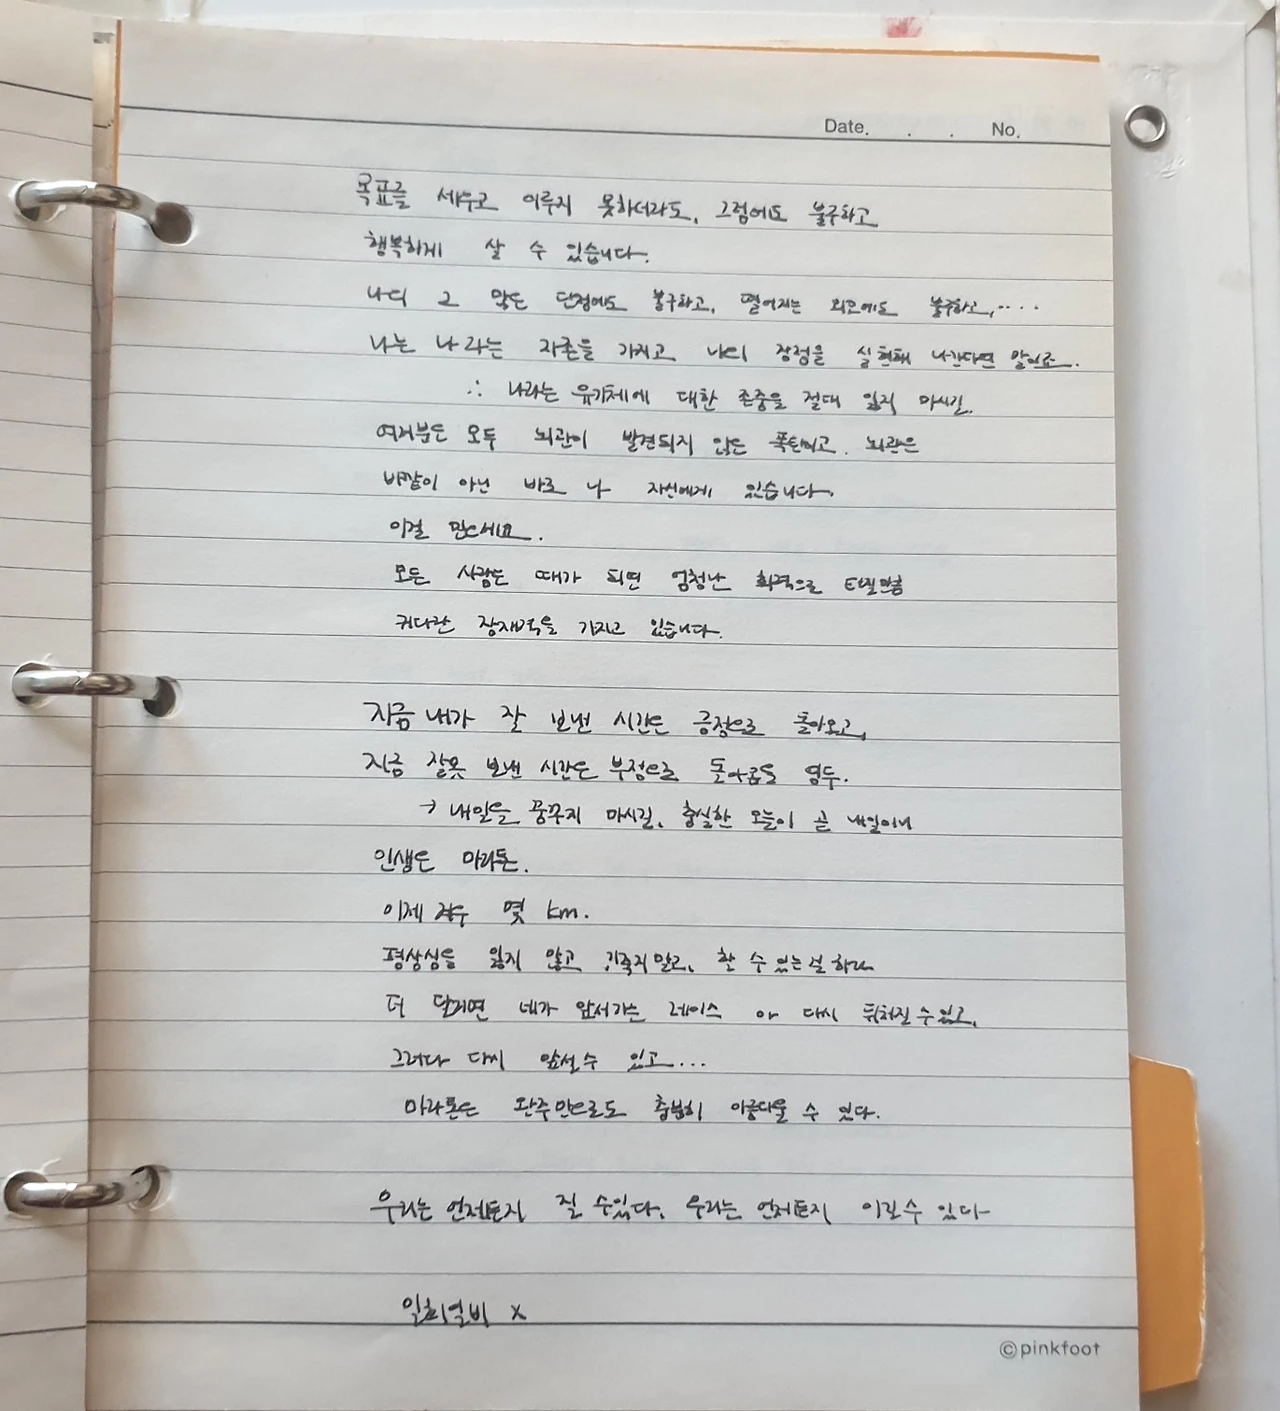 Date. . . No.
목표를 세우고 이루지 못하더라도, 그럼에도 불구하고
행복하게 살 수 있습니다.
나의 그 많은 단점에도 불구하고, 떨어지는 외모에도 불구하고,....
나는 나 라는 자존을 가지고 나의 장점을 실현해 나간다면 말이죠.
∴ 나라는 유기체에 대한 존중을 절대 잃지 마시길.
여러분은 모두 뇌관이 발견되지 않은 폭탄이고. 뇌관은
바깥이 아닌 바로 나 자신에게 있습니다.
이걸 믿으세요.
모든 사람은 때가 되면 엄청난 화력으로 터질만큼
커다란 잠재력을 가지고 있습니다.
지금 내가 잘 보낸 시간은 긍정으로 돌아오고,
지금 잘못 보낸 시간은 부정으로 돌아옴을 염두.
→ 내일을 꿈꾸지 마시길. 충실한 오늘이 곧 내일이니
인생은 마라톤.
이제 겨우 몇 km.
평상심을 잃지 않고 기죽지말고, 할 수 있는걸 하라
더 달리면 네가 앞서가는 레이스 or 다시 뒤쳐질 수 있고,
그러다 다시 앞설 수 있고...
마라톤은 완주만으로도 충분히 아름다울 수 있다.
우리는 언제든지 질 수 있다. 우리는 언제든지 이길 수 있다
일희일비 x
©pinkfoot